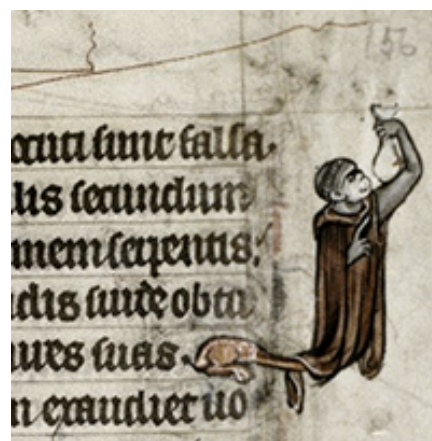 156
ocuti sunt falsa.
lis secundum
inem serpentis.
idis surde obtu
ures suas.
n exaudiet uo